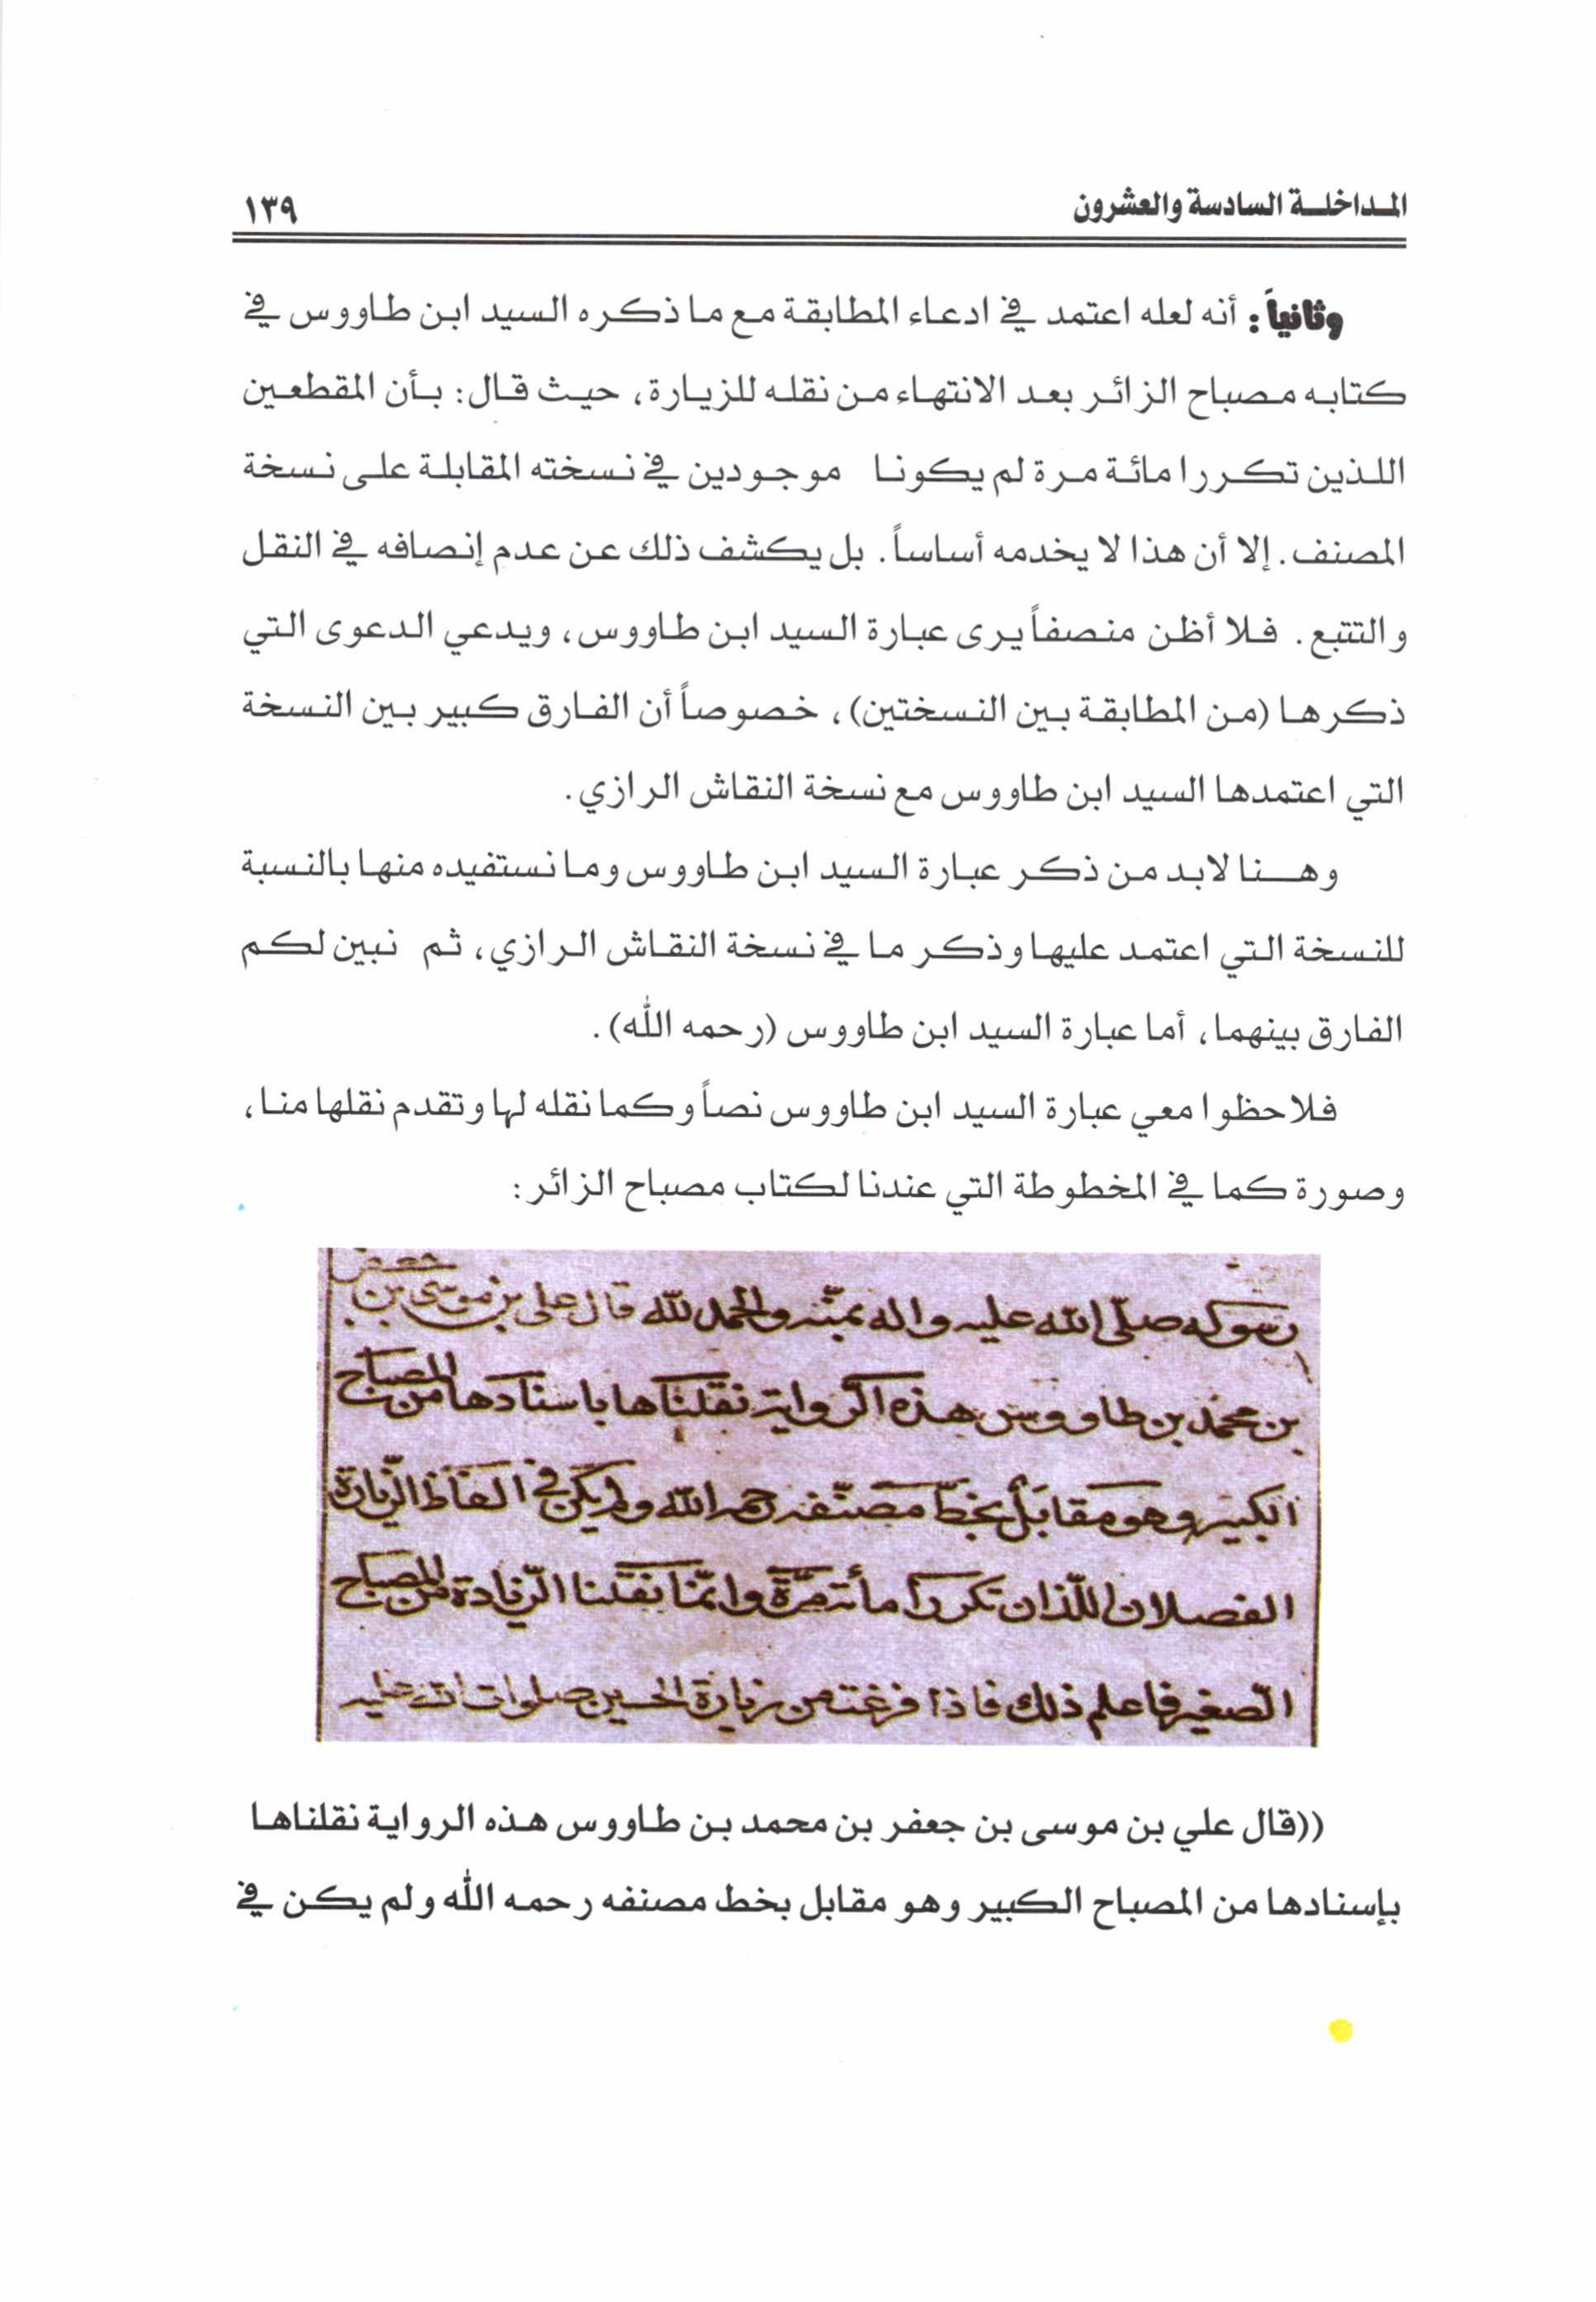 المداخلة السادسة والعشرون ١٣٩
وثانياً: أنه لعله اعتمد في ادعاء المطابقة مع ما ذكره السيد ابن طاووس في
كتابه مصباح الزائر بعد الانتهاء من نقله للزيارة، حيث قال: بأن المقطعين
اللذين تكررا مائة مرة لم يكونا موجودين في نسخته المقابلة على نسخة
المصنف. إلا أن هذا لا يخدمه أساساً. بل يكشف ذلك عن عدم إنصافه في النقل
والتتبع. فلا أظن منصفاً يرى عبارة السيد ابن طاووس، ويدعي الدعوى التي
ذكرها (من المطابقة بين النسختين)، خصوصاً أن الفارق كبير بين النسخة
التي اعتمدها السيد ابن طاووس مع نسخة النقاش الرازي.
وهنا لابد من ذكر عبارة السيد ابن طاووس وما نستفيده منها بالنسبة
للنسخة التي اعتمد عليها وذكر ما في نسخة النقاش الرازي، ثم نبين لكم
الفارق بينهما، أما عبارة السيد ابن طاووس (رحمه الله).
فلاحظوا معي عبارة السيد ابن طاووس نصاً وكما نقله لها وتقدم نقلها منا،
وصورة كما في المخطوطة التي عندنا لكتاب مصباح الزائر:
رسوله صلّى الله عليه واله بمنّه والحمد لله قال على بن موسى بن
بن محمد بن طاووس هذه الرواية نقلناها باسنادها من المصباح
الكبير وهو مقابل بخطّ مصنّفه رحمه الله ولم يكن في الفاظ الزّيارة
الفصلان اللّذان تكررا مأة مرّة وانّما نقلنا الزّيادة من المصباح
الصّغير فاعلم ذلك فاذا فرغت من زيارة الحسين صلوات الله عليه
((قال علي بن موسى بن جعفر بن محمد بن طاووس هذه الرواية نقلناها
بإسنادها من المصباح الكبير وهو مقابل بخط مصنفه رحمه الله ولم يكن في